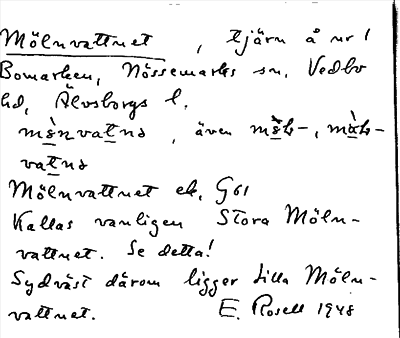 Mölnvattnet, tjärn å nr 1
Bomarken, Nössemarks sn, Vedbo
hd, Älvsborgs l.
mö̀nvatnə, även
vatnə
Mölnvattnet ek. G61
Kallas vanligen Stora Möln-
vattnet. Se detta!
Sydväst därom ligger Lilla Möln-
vattnet. E. Rosell 1948